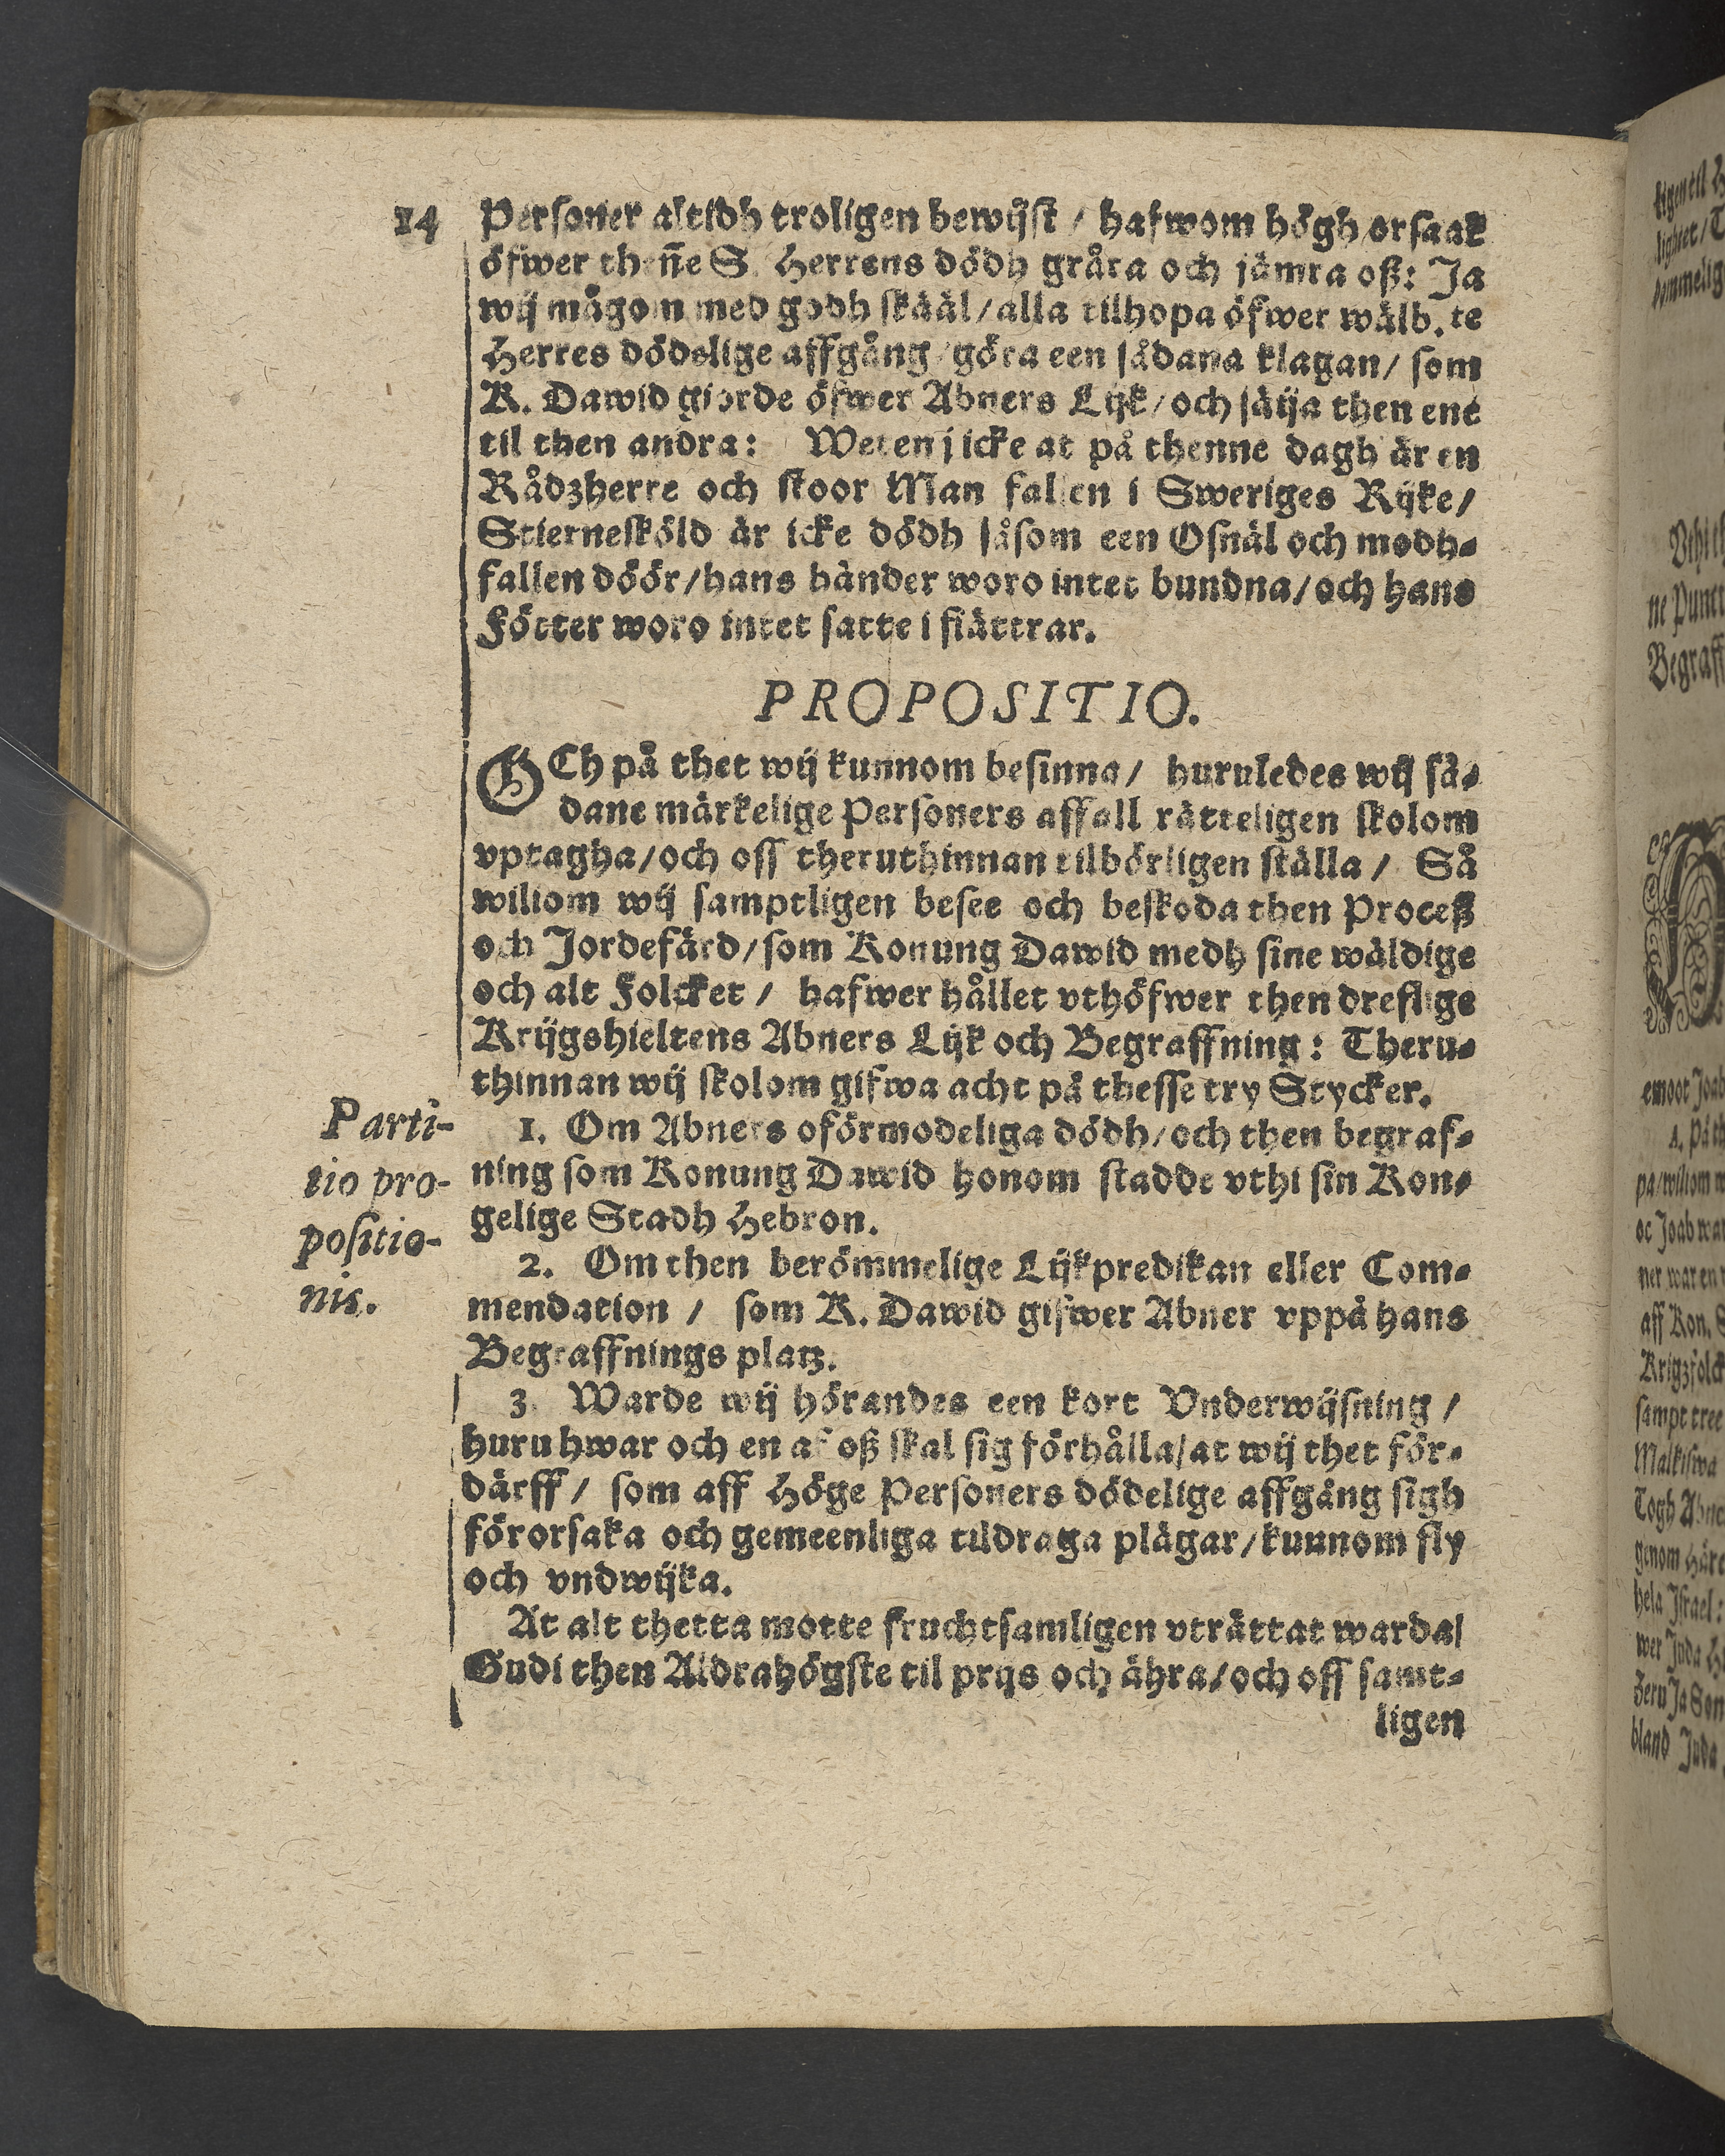 14
Personer altidh troligen bewijst / hafwom högh orsaak
öfwer theñe S. Herrens dödh gråta och jämra oß: Ja
wij mågom med godh skääl / alla tilhopa öfwer wälb.te
Herres dödelige affgång / göra een sådana klagan / som
K. Dawid giorde öfwer Abners Lijk / och säija then ene
til then andra: Weten j icke at på thenne dagh är en
Rådzherre och stoor Man fallen i Sweriges Rijke /
Stiernesköld är icke dödh såsom een Osnäl och modh-
fallen döör / hans händer woro intet bundna / och hans
Fötter woro intet satte i fiättrar.
PROPOSITIO.
OCh på thet wij kunnom besinna / huruledes wij så-
dane märkelige Personers affall rätteligen skolom
vptagha / och oss theruthinnan tilbörligen ställa / Så
wiliom wij samptligen besee och beskoda then Proceß
och Jordefärd / som Konung Dawid medh sine wäldige
och alt Folcket / hafwer hållet vthöfwer then dreflige
Krijgshieltens Abners Lijk och Begraffning: Theru-
thinnan wij skolom gifwa acht på thesse try Stycker.
Parti-
tio pro-
positio-
nis.
1. Om Abners oförmodeliga dödh / och then begraf-
ning som Konung Dawid honom stadde vthi sin Kon-
gelige Stadh Hebron.
2. Om then berömmelige Lijkpredikan eller Com-
mendation / som K. Dawid gifwer Abner vppå hans
Begraffnings platz.
3. Warde wij hörandes een kort Vnderwijsning /
huru hwar och en af oß skal sig förhålla / at wij thet för-
därff / som aff Höge Personers dödelige affgång sigh
förorsaka och gemeenliga tildraga plägar / kunnom fly
och vndwijka.
At alt thetta motte fruchtsamligen vträttat warda /
Gudi then Aldrahögste til prijs och ähra / och oss samt-
ligen